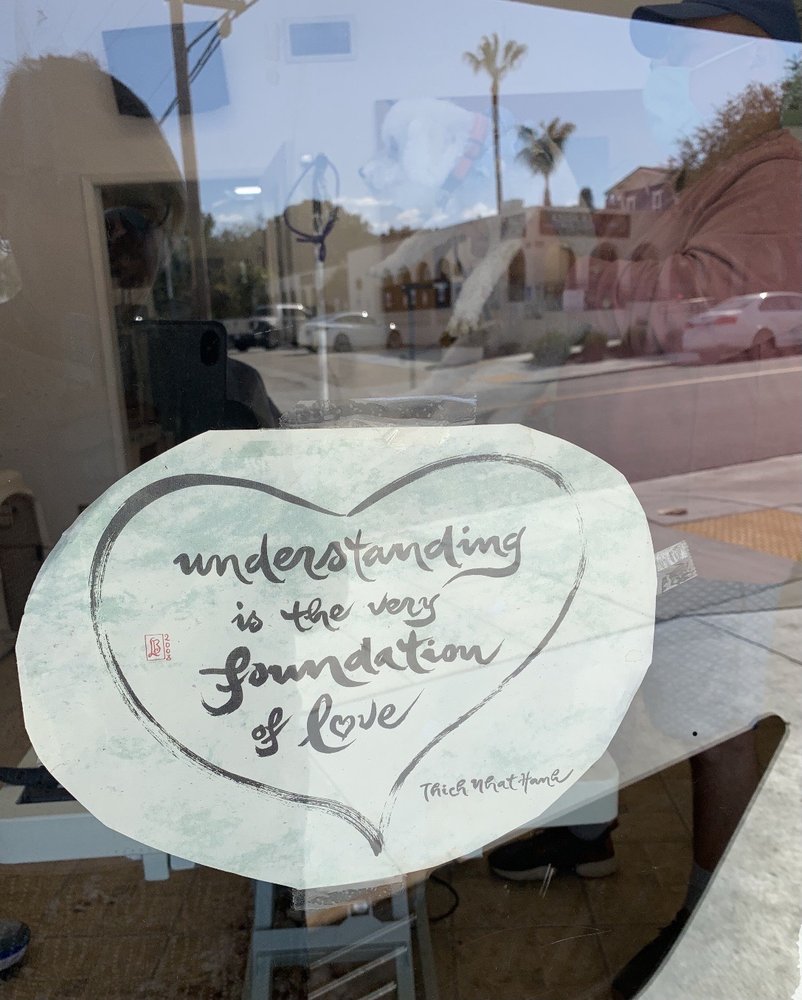 understanding
is the very
foundation
of love
B 2008
Thich Nhat Hanh